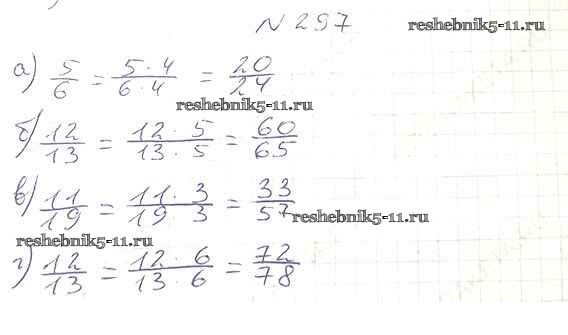 № 297 reshebnik5-11.ru
а) 5/6 = 5·4/6·4 = 20/24
reshebnik5-11.ru
б) 12/13 = 12·5/13·5 = 60/65
в) 11/19 = 11·3/19·3 = 33/57
reshebnik5-11.ru
reshebnik5-11.ru
г) 12/13 = 12·6/13·6 = 72/78